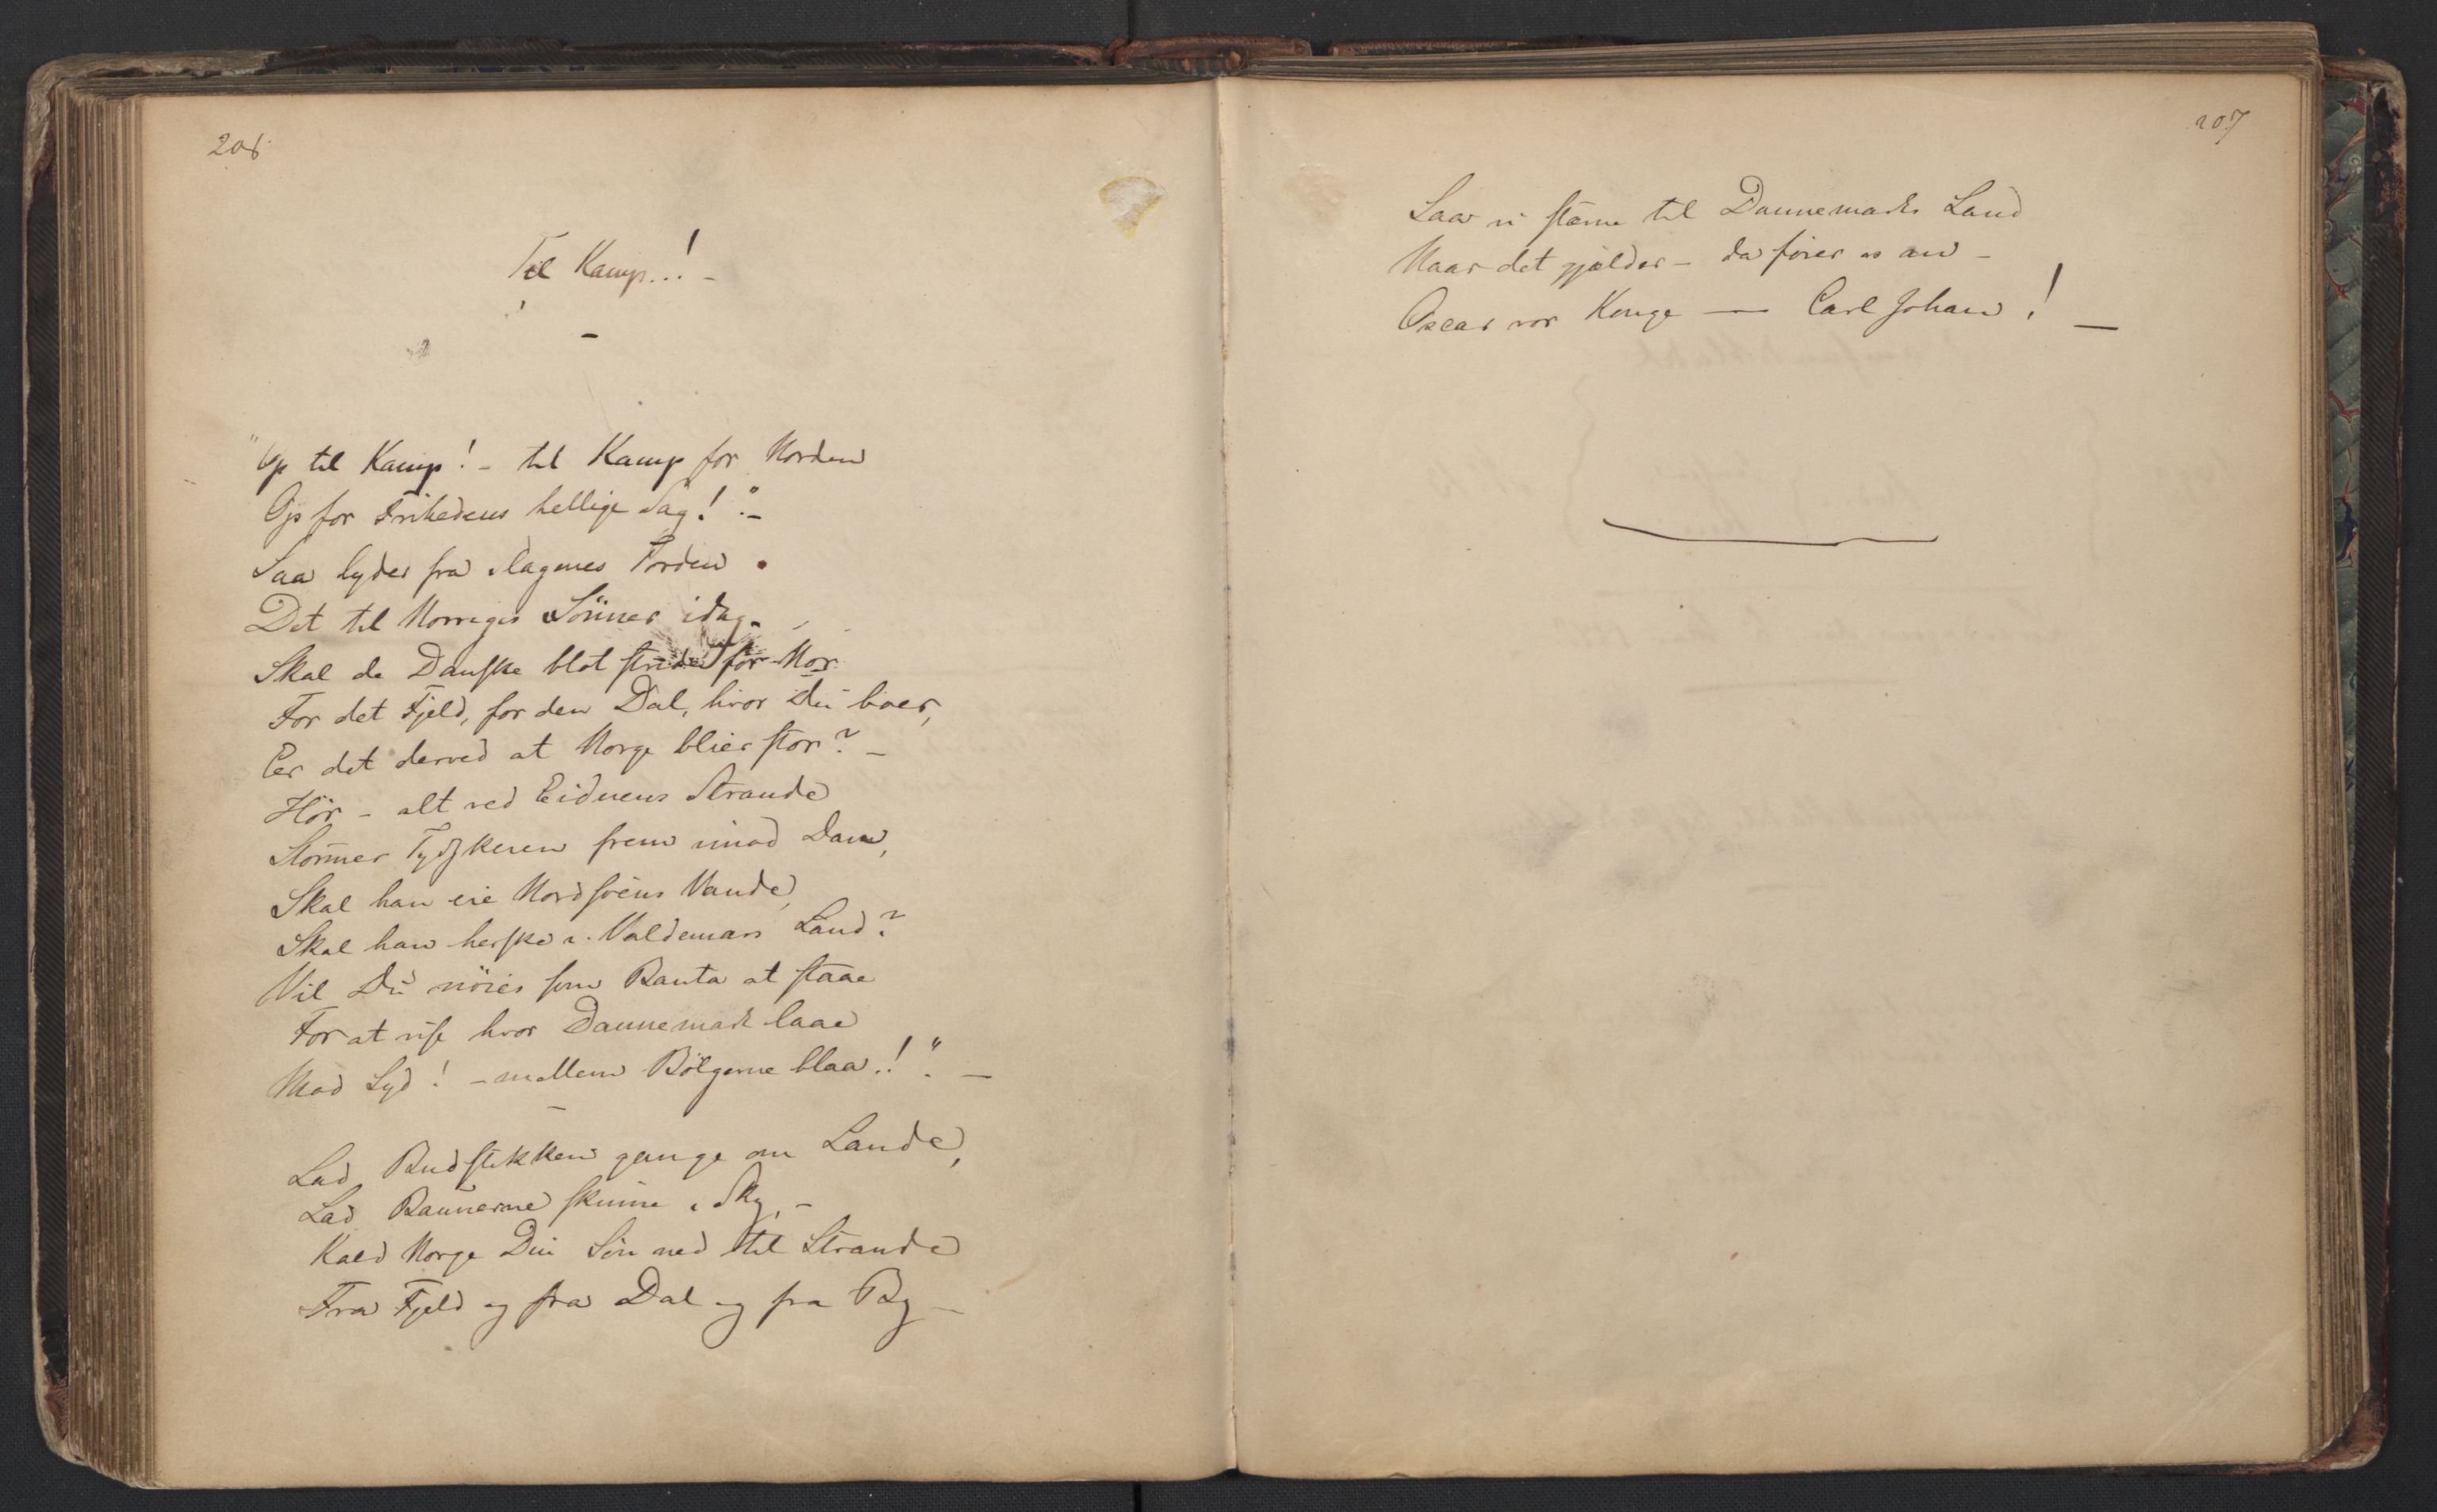 206
Til Kamp..! -
"Op til Kamp! - til Kamp for Norden
Op for Frihedens hellige Sag!" -
Saa lyder fra Sagenes Torden.
Det til Norriges Sönner idag.
Skal de Danske blot stride for Nor
For det Fjeld, for den Dal, hvor Du boer,
Er det derved at Norge blier stor? -
Hör - alt ved Eidrens Strande
Stormer Tydskeren frem imod Dan,
Skal han eie Nordsöens Vande,
Skal han herske i Valdemars Land?
Vil Du nöies som Bauta at staae
For at vise hvor Dannemark laae
Mod Syd! - mellem Bölgerne blaa.!" -
Lad Budstikken gange om Lande,
Lad Baunerne skinne i Sky, -
Kald Norge Din Sön ned til Strande
Fra Fjeld og fra Dal og fra By -
207
Saa vi stævne til Dannemarks Land
Naar det gjælder - da förer os an -
Oscar vor Konge — Carl Johan! —